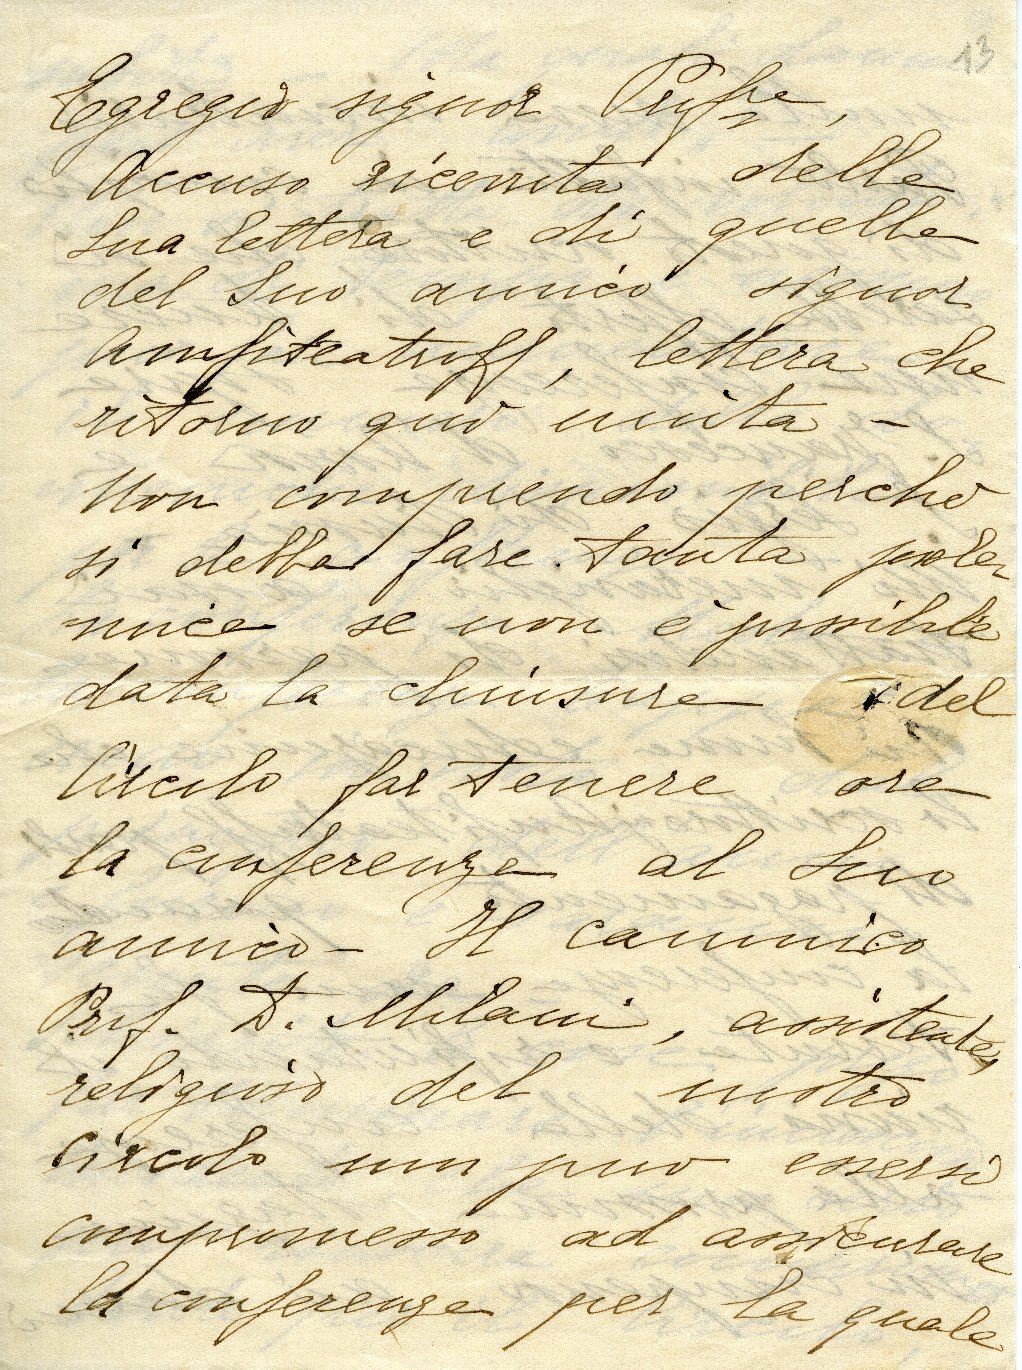 13
Egregio signor Profre,
Accuso ricevuta della
Sua lettera e di quella
del Suo amico signor
Amfiteatroff, lettera che
ritorno quì unita -
Non comprendo perchè
si debba fare tanta pole-
mica se non è possibile
data la chiusura del
Circolo far tenere ora
la conferenza al Suo
amico - Il canonico
Prof. D. Milani, assistente
religioso del nostro
Circolo non può essersi
compromesso ad assicurare
la conferenza per la quale